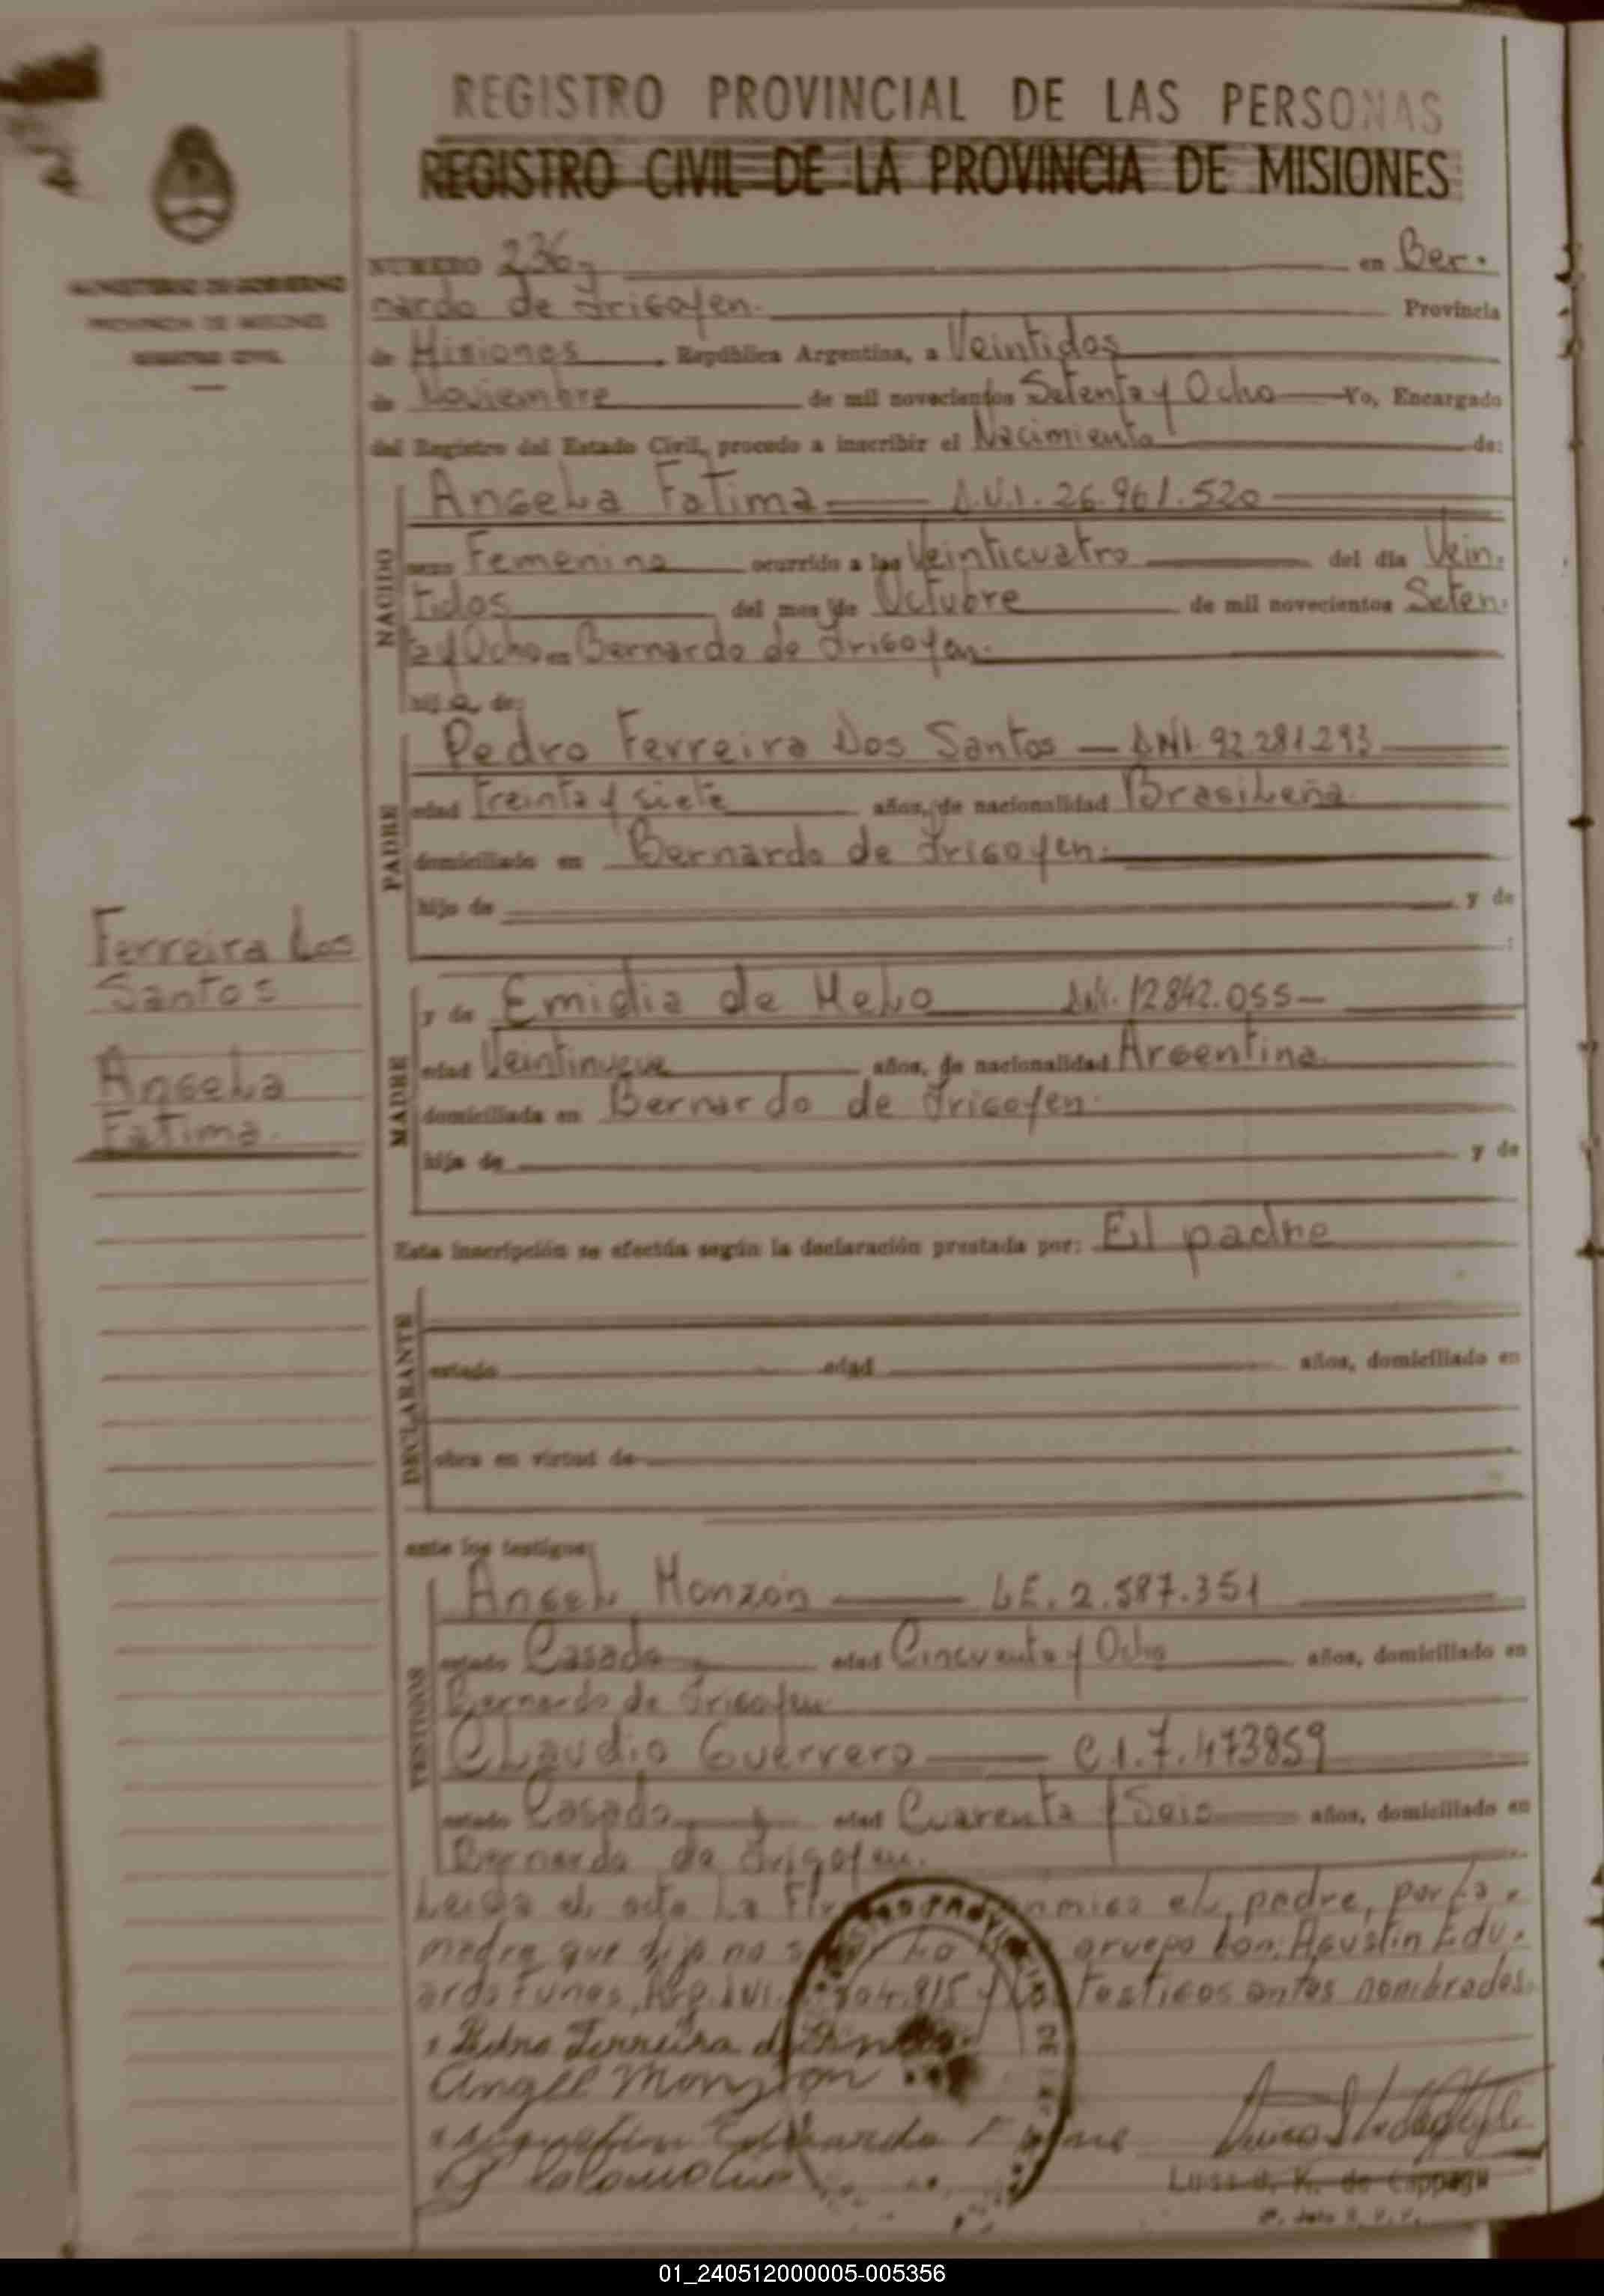 REGISTRO PROVINCIAL DE LAS PERSONAS
REGISTRO CIVIL DE LA PROVINCIA DE MISIONES
MINISTERIO DE GOBIERNO
PROVINCIA DE MISIONES
REGISTRO CIVIL
NUMERO 236 en Ber.
nardo de Irigoyen. Provincia
de Misiones República Argentina, a Veintidos
de Noviembre de mil novecientos Setenta y Ocho Yo, Encargado
del Registro del Estado Civil, procedo a inscribir el Nacimiento de:
NACIDO
Angela Fatima D.N.I. 26.961.520
sexo Femenino ocurrido a las Veinticuatro del dia Vein.
tidos del mes de Octubre de mil novecientos Seten.
ta y Ocho en Bernardo de Irigoyen.
hij a de:
PADRE
Pedro Ferreira Dos Santos — DNI. 92.281.293
edad Treinta y siete años, de nacionalidad Brasileña.
domiciliado en Bernardo de Irigoyen.
hijo de y de
Ferreira Dos
Santos
Angela
Fatima.
MADRE
y de Emidia de Melo DNI. 12842.055-
edad Veintinueve años, de nacionalidad Argentina.
domiciliada en Bernardo de Irigoyen.
hija de y de
Esta inscripción se efectúa según la declaración prestada por: El padre
DECLARANTE
estado edad años, domiciliado en
obra en virtud de
ante los testigos:
TESTIGOS
Angel Monzón LE. 2.587.351
estado Casado edad Cincuenta y Ocho años, domiciliado en
Bernardo de Irigoyen
Claudio Guerrero C.I. 7.473859
estado Casado edad Cuarenta y Seis años, domiciliado en
Bernardo de Irigoyen.
Leida el acta La conmigo el padre, por la
madre que dijo no aruego Don: Agustin Edu.
ardo Funes, 04.815 y Los Testigos antes nombrados.
Pedro Ferreira
Angel Monzon
Eduardo
Luisa K. de
01_240512000005-005356